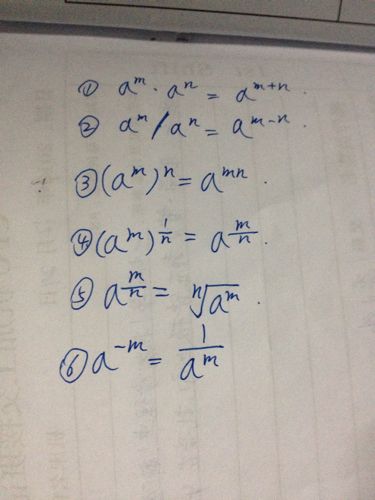 ① aᵐ · aⁿ = aᵐ⁺ⁿ.
② aᵐ / aⁿ = aᵐ⁻ⁿ.
③ (aᵐ)ⁿ = aᵐⁿ.
④ (aᵐ)^(1/n) = a^(m/n).
⑤ a^(m/n) = ⁿ√(aᵐ).
⑥ a⁻ᵐ = 1/aᵐ